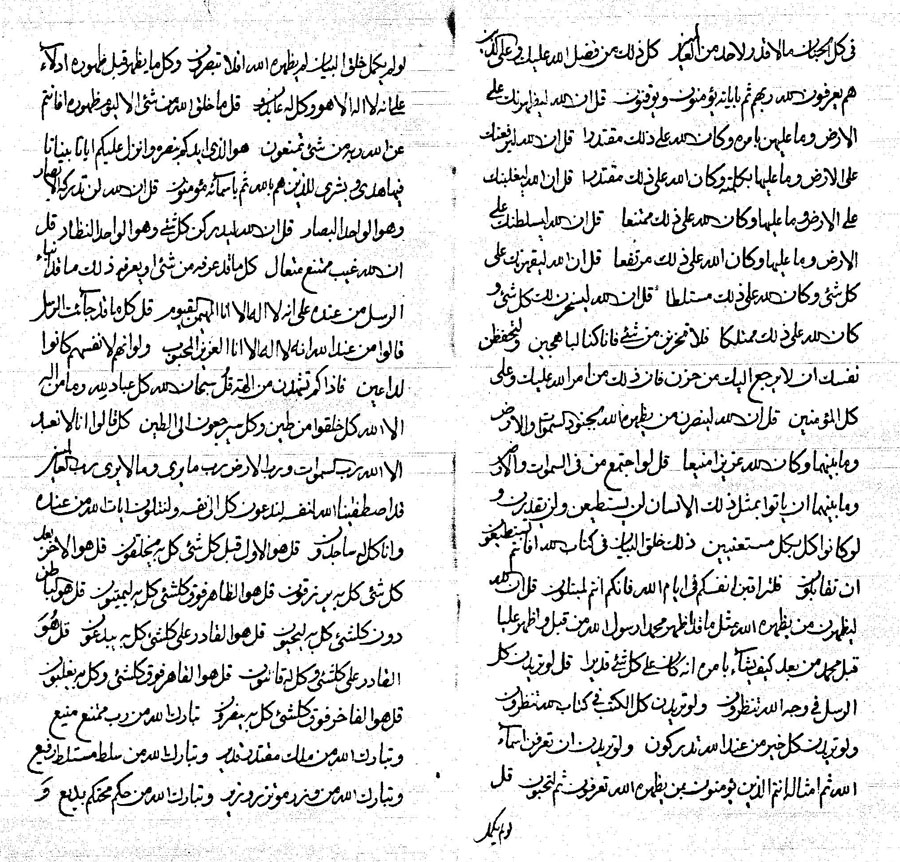 في كل الجنان مالا قدر لاحد من العباد كل ذلك من فضل الله عليك وعلى الذين
هم يعرفون الله ربهم ثم باياته يؤمنون ويوقنون قل ان الله ليظهرنك على
الارض وما عليها بامره وكان الله على ذلك مقتدرا قل ان الله ليرفعنك
على الارض وما عليها بكلمته وكان الله على ذلك مقتدرا قل ان الله ليغلبنك
على الارض وما عليها وكان الله على ذلك ممتنعا قل ان الله ليسلطنك على
الارض وما عليها وكان الله على ذلك مرتفعا قل ان الله ليقهرنك على
كل شئ وكان الله على ذلك مستلطا قل ان الله ليسخرن لك كل شئ و
كان الله على ذلك ممتلكا فلا تحزن من شئ فانا كنا لباهجين ولتحفظن
نفسك ان لا يرجع اليك من حزن فان ذلك من امر الله عليك وعلى
كل المؤمنين قل ان الله لينصرن من يظهره الله بجنود السموات والارض
وما بينهما وكان الله عزيزا منيعا قل لو اجتمع من في السموات والارض
وما بينهما ان ياتوا بمثل ذلك الانسان لن يستطيعن ولن يقدرن و
لو كانوا كل بكل مستعنيين ذلك خلق البيان في كتاب الله افانتم تستطيعون
ان تقابلون فلتراقبن انفسكم في ايام الله فانكم انتم لمبتلون قل ان الله
ليظهرن من يظهره الله مثل ما قد اظهر محمدا رسول الله من قبل واظهر عليا
قبل محمد من بعد كيف يشاء بامره انه كان على كل شئ قديرا قل لو تريدن كل
الرسل في وجه الله تنظرون ولو تريدن كل الكتب في كتاب الله تنظرون
ولو تريدن كل خير من عند الله تدركون ولو تريدن ان تعرفن اسماء
الله ثم امثاله انتم الذين يؤمنون بمن يظهره الله تعرفون ثم لتحبون قل
لو لم يكمل
لو لم يكمل خلق البيان لم يظهره الله افلا تبصرون وكل ما يظهر قبل ظهوره ادلاء
على انه لا اله الا هو وكل له عابدون قل ما خلق الله من شئ الا ليوم ظهوره افانتم
عن الله ربه من شئ تمنعون هو الذي ايدكم بنصره وانزل عليكم ايات بينات
فيها هدى وبشرى للذين هم بالله ثم باسمائه مؤمنون قل ان الله لن تدركه الابصار
وهو الواحد البصار قل ان الله ليدركن كل شئ وهو الواحد النظار قل
ان الله غيب ممتنع متعال كل ما قد عرفه من شئ او يعرفه ذلك ما قد انباء
الرسل من عنده على انه لا اله الا انا المهيمن القيوم قل كل ما قد جائت الرسل
قالوا من عند الله انه لا اله الا انا العزيز المحبوب ولو انهم لانفسهم كانوا
لداعين فاذا كم تشهدن من الهة قل سبحان الله كل عباد لله وما من اله
الا الله كل خلقوا من طين وكل سيرجعون الى الطين كل قالوا انا لا نعبد
الا الله رب السموات ورب الارض رب ما يرى وما لا يرى رب العالمين
قد اصطفينا الله لنفسه لندعون كل الى نفسه ولنتلون ايات الله من عنده
وانا كل له ساجدون قل هو الاول قبل كل شئ كل به يخلقون قل هو الاخر بعد
كل شئ كل به يرزقون قل هو الظاهر فوق كلشئ كل به ليميتون قل هو الباطن
دون كلشئ كل به ليحيون قل هو القادر على كلشئ كل به يبدعون قل هو
القادر على كلشئ وكل له قانتون قل هو القاهر فوق كلشئ وكل به يغلبون
قل هو الفاخر فوق كلشئ كل به ينصرون تبارك الله من رب ممتنع منيع
وتبارك الله من ملك مقتدر قدير وتبارك الله من سلط مستلط رفيع
وتبارك الله من وزر موتزر وزير وتبارك الله من حكم محتكم بديع و